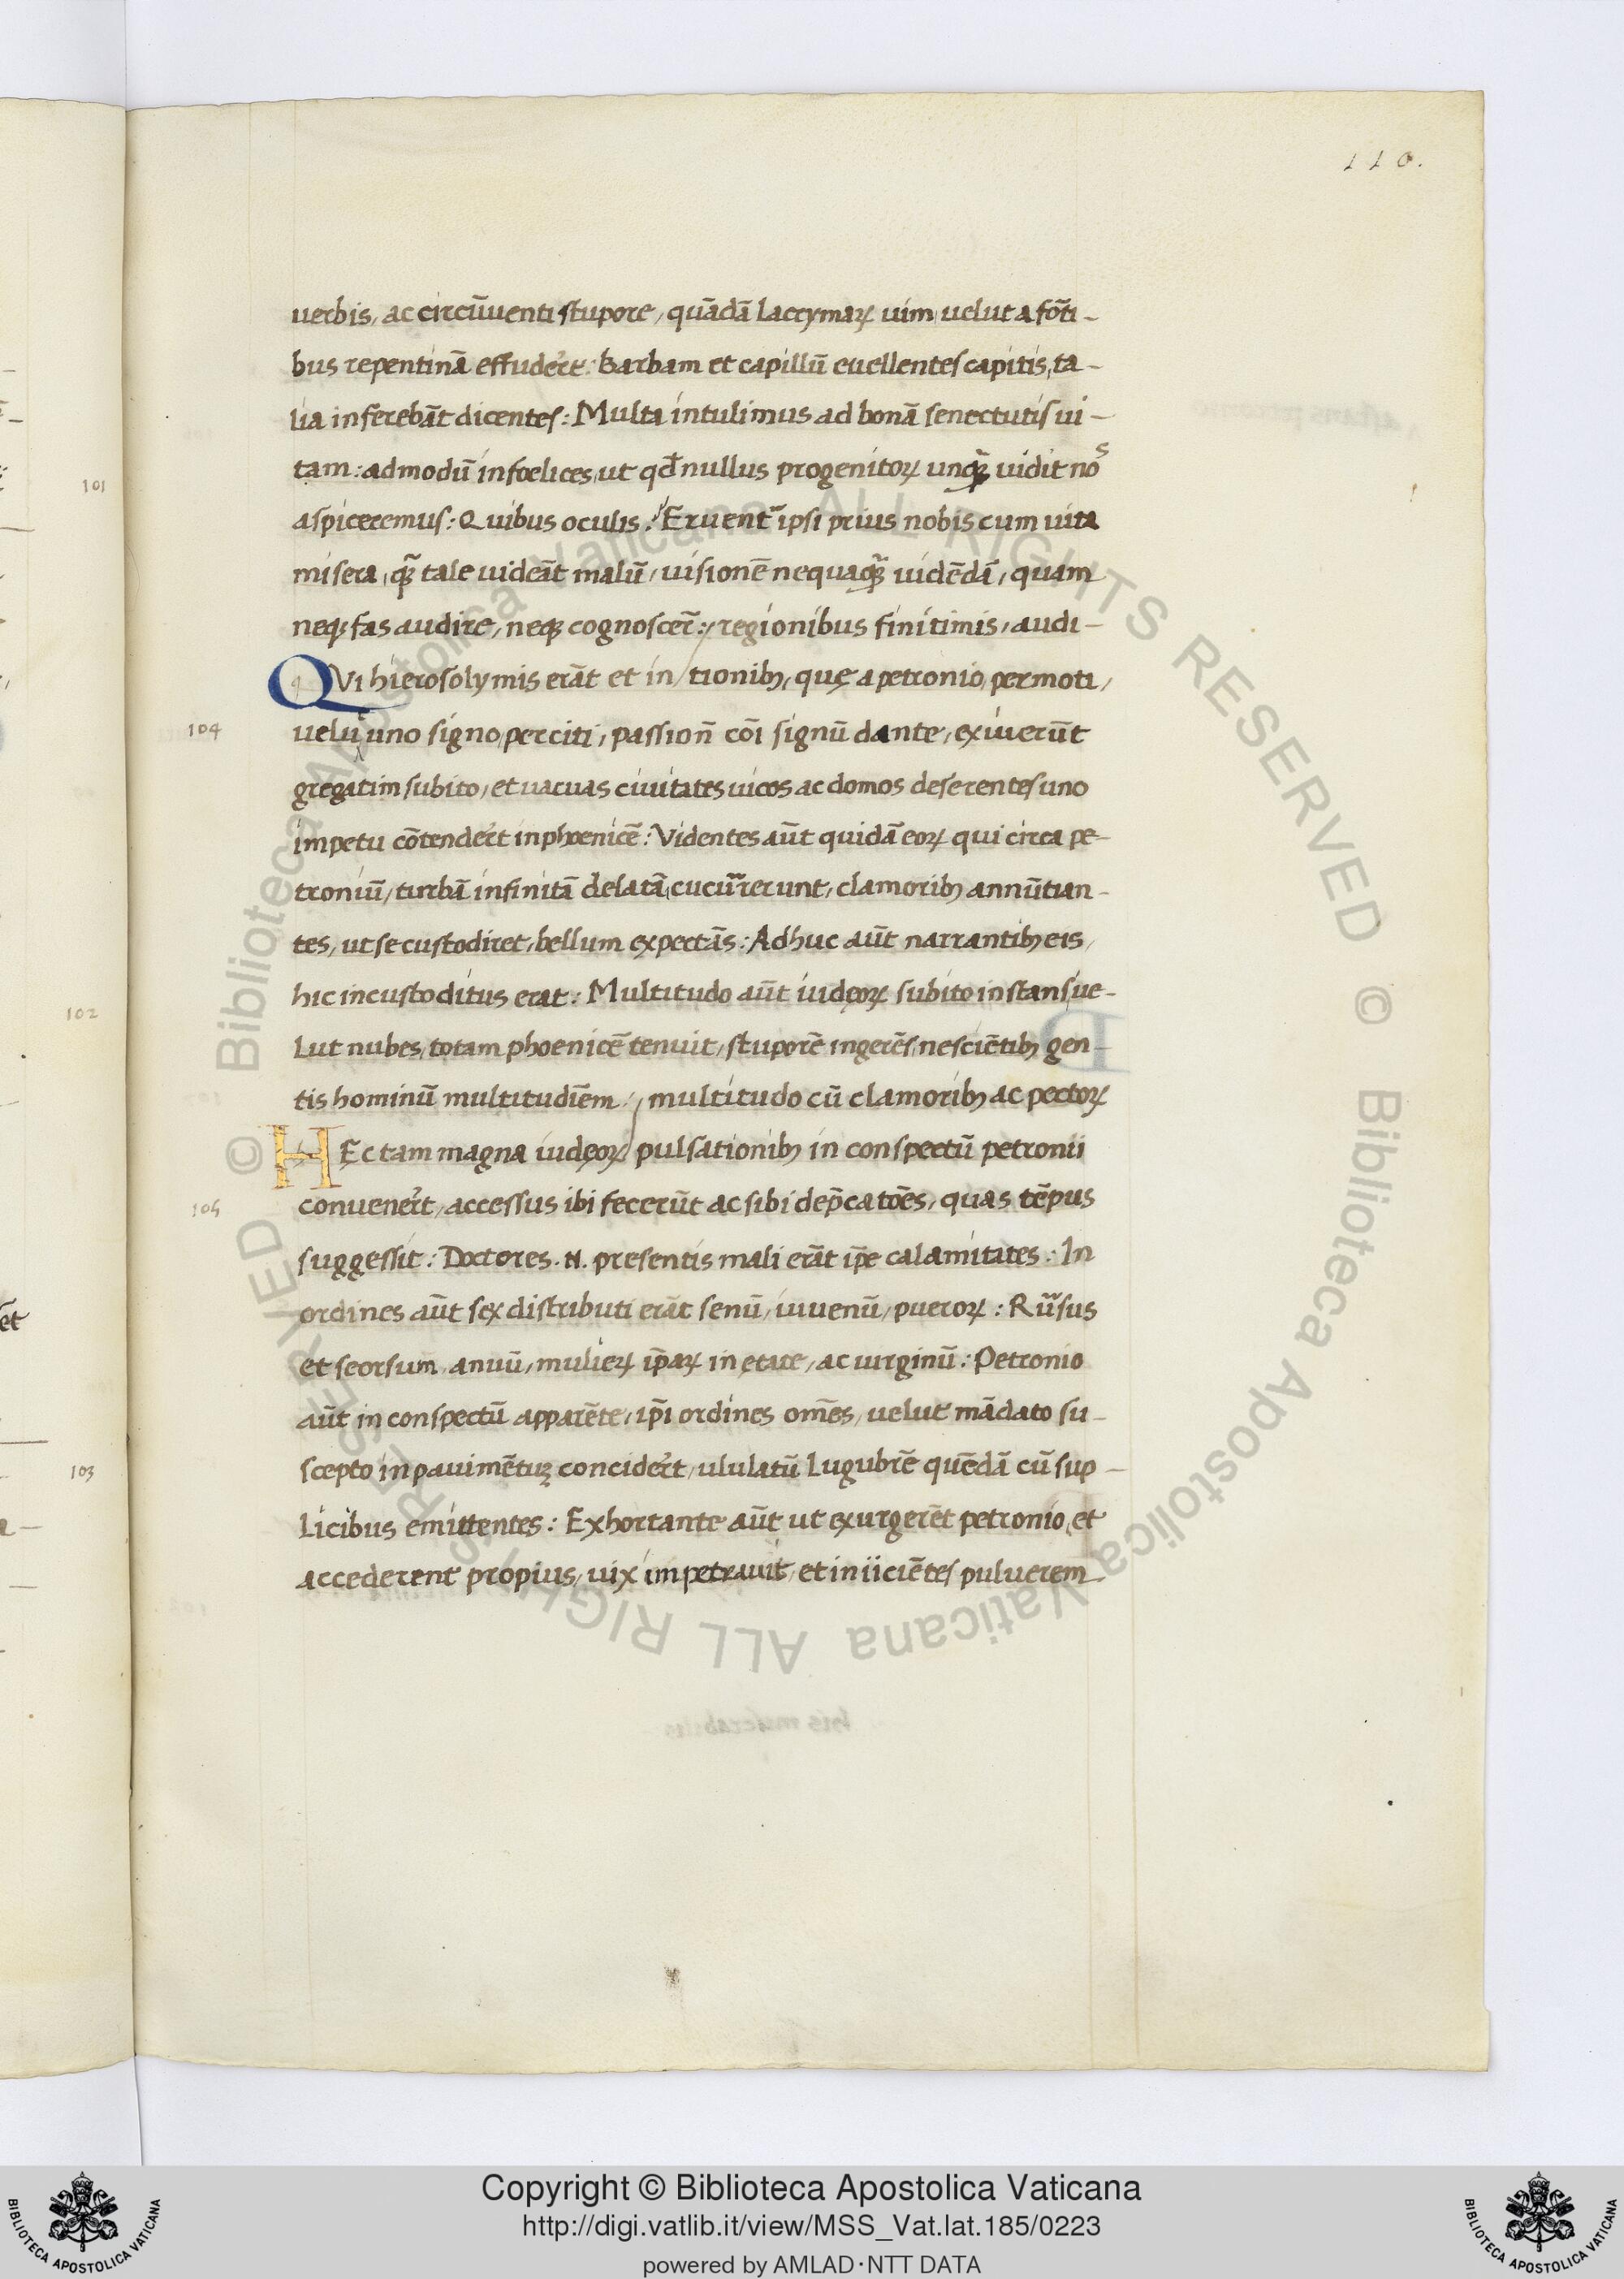 110.
uerbis, ac circũuenti stupore, quãdã lacrymaꝝ uim uelut a fõti-
bus repentinã effuder̃t: Barbam et capillũ euellentes capitis, ta-
lia inferebãt dicentes: Multa intulimus ad bonã senectutis ui-
tam: admodũ infoelices, ut qd̃ nullus progenitoꝝ unqꝫ̃ uidit nos
aspiceremus: Quibus oculis? Eruent᷑ ipsi prius nobis cum uita
misera, qꝫ̃ tale uideãt malũ, uisionẽ nequaqꝫ̃ uidẽdã, quam
neqꝫ fas audire, neqꝫ cognoscer̃: regionibus finitimis, audi-
QVi hierosolymis erãt et in tionibꝫ, quę a petronio, permoti,
101
uelut uno signo perciti, passioñ cõi signũ dante, exiuerũt
104
gregatim subito, et uacuas ciuitates uicos ac domos deserentes uno
impetu cõtender̃t in phoenicẽ: Videntes aũt quidã eoꝝ qui circa pe-
troniũ, turbã infinitã delatã, cucur̃rerunt, clamoribꝫ annũtian-
tes, ut se custodiret, bellum expectãs: Adhuc aũt narrantibꝫ eis,
hic incustoditus erat: Multitudo aũt iudęoꝝ subito instans, ue-
102
lut nubes, totam phoenicẽ tenuit, stuporẽ ingerẽs, nesciẽtibꝫ gen-
tis hominũ multitudiẽm: multitudo cũ clamoribꝫ ac pectoꝝ
HĘc tam magna iudęoꝝ pulsationibꝫ in conspectũ petronii
conuener̃t, accessus ibi fecerũt ac sibi dep̃catões, quas tẽpus
105
suggessit: Doctores .N. presentis mali erãt ip̃e calamitates: In
ordines aũt sex distributi erãt senũ, iuuenũ, pueroꝝ: Rur̃sus
et seorsum anuũ, mulieꝝ ip̃aꝝ in ętate, ac uirginũ: Petronio
aũt in conspectũ apparẽte, ip̃i ordines om̃es, uelut mãdato su-
scepto in pauimẽtuꝫ concider̃t, ululatũ lugubrẽ quẽdã cũ sup-
103
licibus emittentes: Exhortante aũt ut exurgerẽt petronio, et
accederent propius, uix impetrauit, et iniiciẽtes puluerem
© Biblioteca Apostolica Vaticana ALL RIGHTS RESERVED © Biblioteca Apostolica Vaticana ALL RIGHTS RESERVED
Copyright © Biblioteca Apostolica Vaticana
http://digi.vatlib.it/view/MSS_Vat.lat.185/0223
powered by AMLAD·NTT DATA
BIBLIOTECA APOSTOLICA VATICANA
BIBLIOTECA APOSTOLICA VATICANA